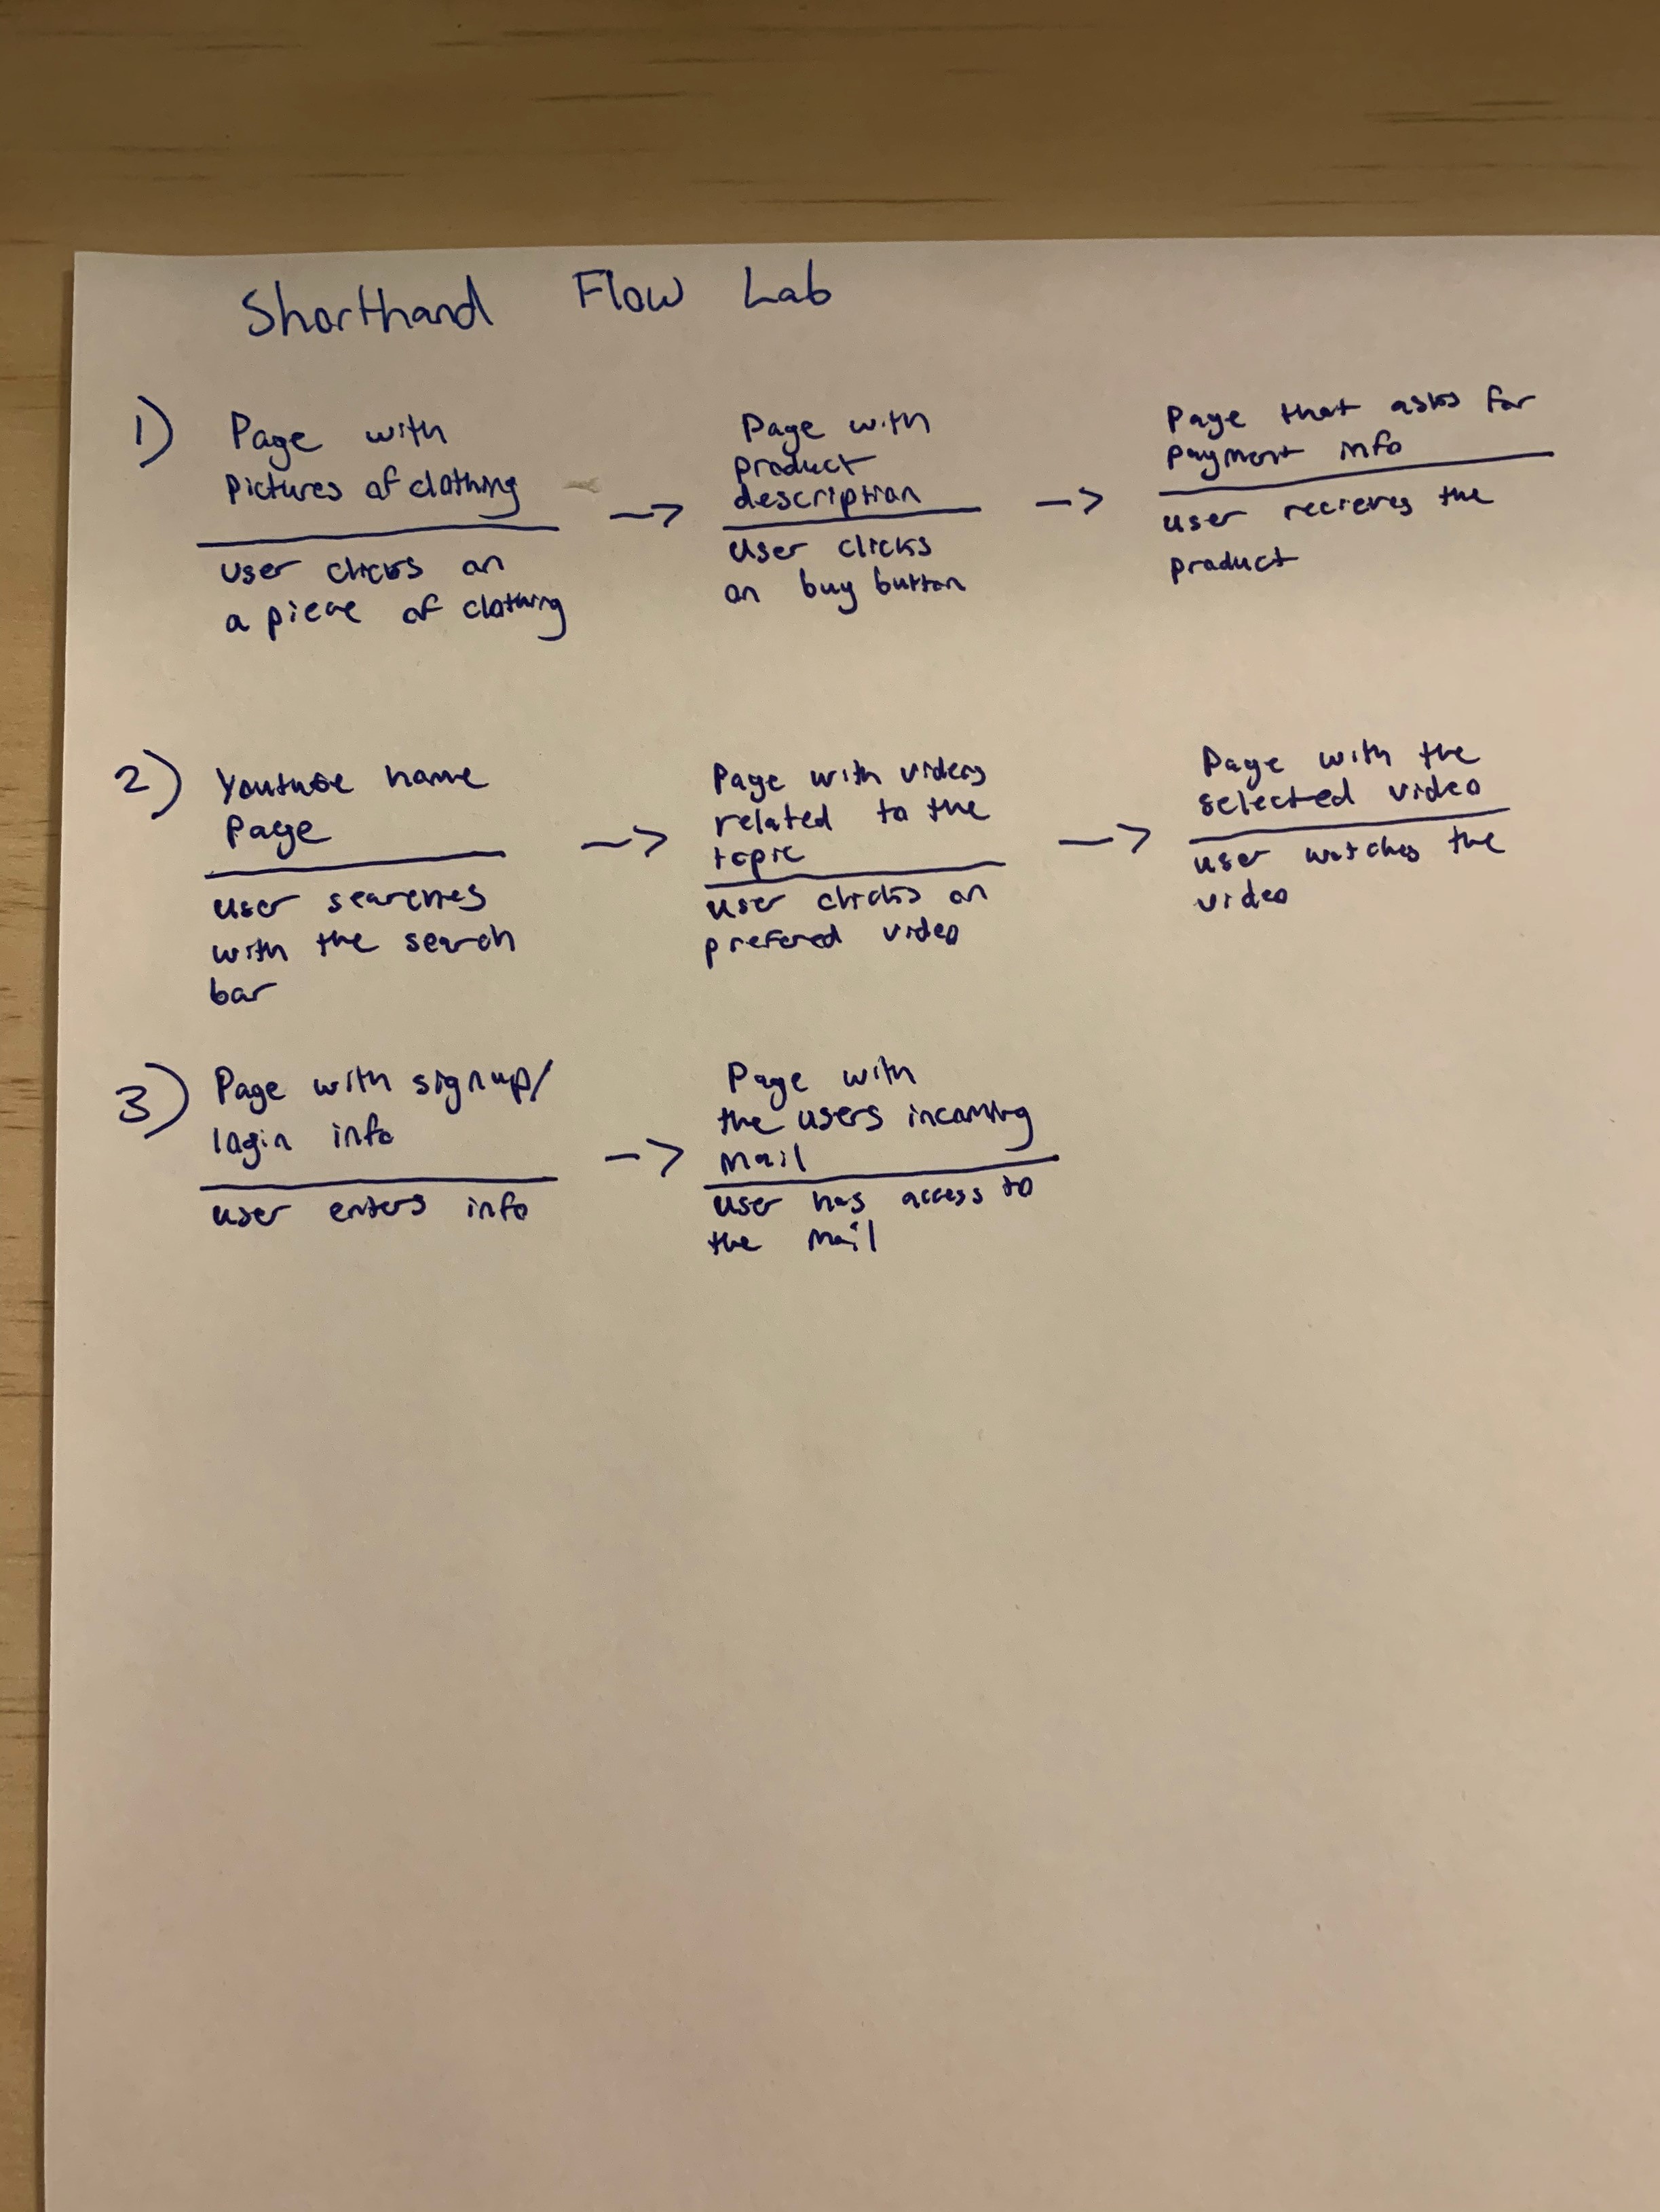 Shorthand Flow Lab
1) Page with
pictures of clothing
user clicks on
a piece of clothing
->
Page with
product
description
user clicks
on buy button
->
Page that asks for
payment info
user recieves the
product
2) Youtube home
page
user searches
with the search
bar
->
Page with videos
related to the
topic
user clicks on
prefered video
->
Page with the
selected video
user watches the
video
3) Page with signup/
login info
user enters info
->
Page with
the users incoming
mail
user has access to
the mail